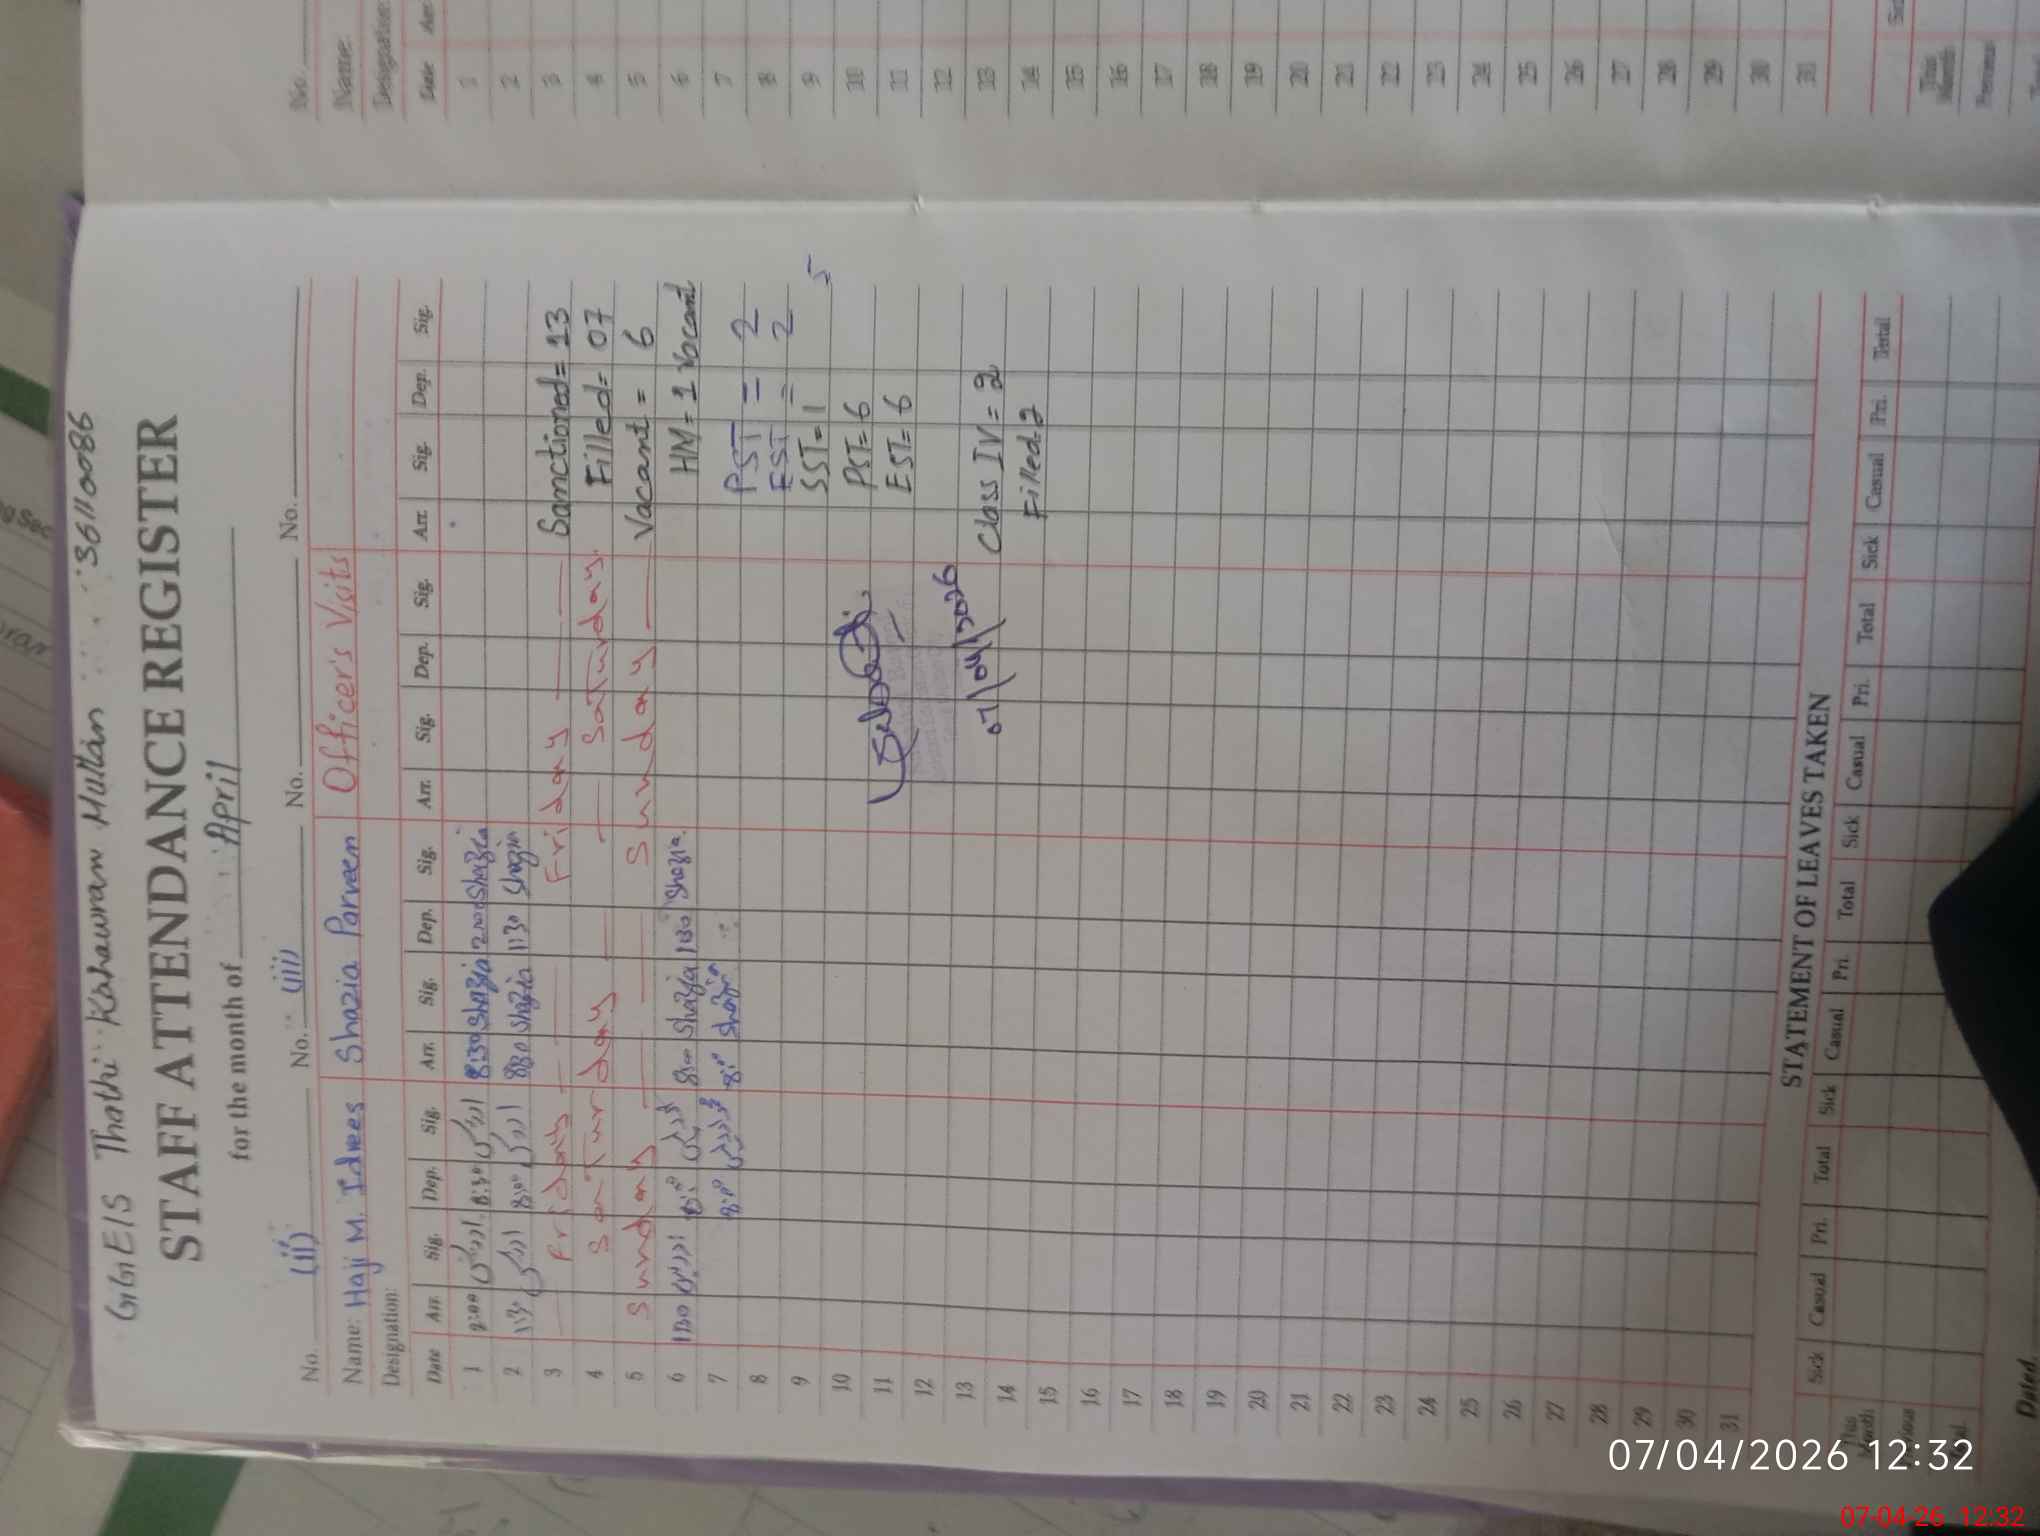 GGEIS Thathi Kahawran Multan 36110086
STAFF ATTENDANCE REGISTER
for the month of April
No. (ii) No. (iii) No. No.
Name: Haji M. Idrees Shazia Parveen Officer's Visits
Designation:
Date Arr. Sig. Dep. Sig. Arr. Sig. Dep. Sig. Arr. Sig. Dep. Sig. Arr. Sig. Dep. Sig.
1 2:00 8:30 8:30 Shazia 2:00 Shazia
2 1:30 8:00 8:30 Shazia 1:30 Shazia
3 Friday Friday Sanctioned = 13
4 Saturday Saturday Filled = 07
5 Sunday Sunday Vacant = 6
6 1:30 8:00 8:00 Shazia 1:30 Shazia HM = 1 Vacant
7 8:00 8:00 Shazia PST = 2
8 EST = 2
9 SST = 1 5
10 PST = 6
11 EST = 6
12
13 07/04/2026 Class IV = 2
14 Filled = 2
15
16
17
18
19
20
21
22
23
24
25
26
27
28
29
30
31
STATEMENT OF LEAVES TAKEN
Sick Casual Pri. Total Sick Casual Pri. Total Sick Casual Pri. Total Sick Casual Pri. Total
This Month
Dated
No.
Name:
Designation:
Date Arr.
1
2
3
4
5
6
7
8
9
10
11
12
13
14
15
16
17
18
19
20
21
22
23
24
25
26
27
28
29
30
31
This Month
Previous
07/04/2026 12:32
07-04-26 12:32